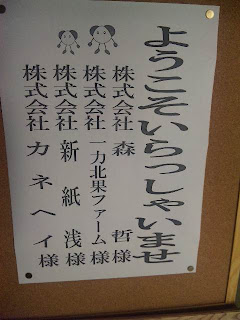 ようこそいらっしゃいませ
株式会社 森 哲様
株式会社 一力北果ファーム様
株式会社 新紙浅様
株式会社 カネヘイ様